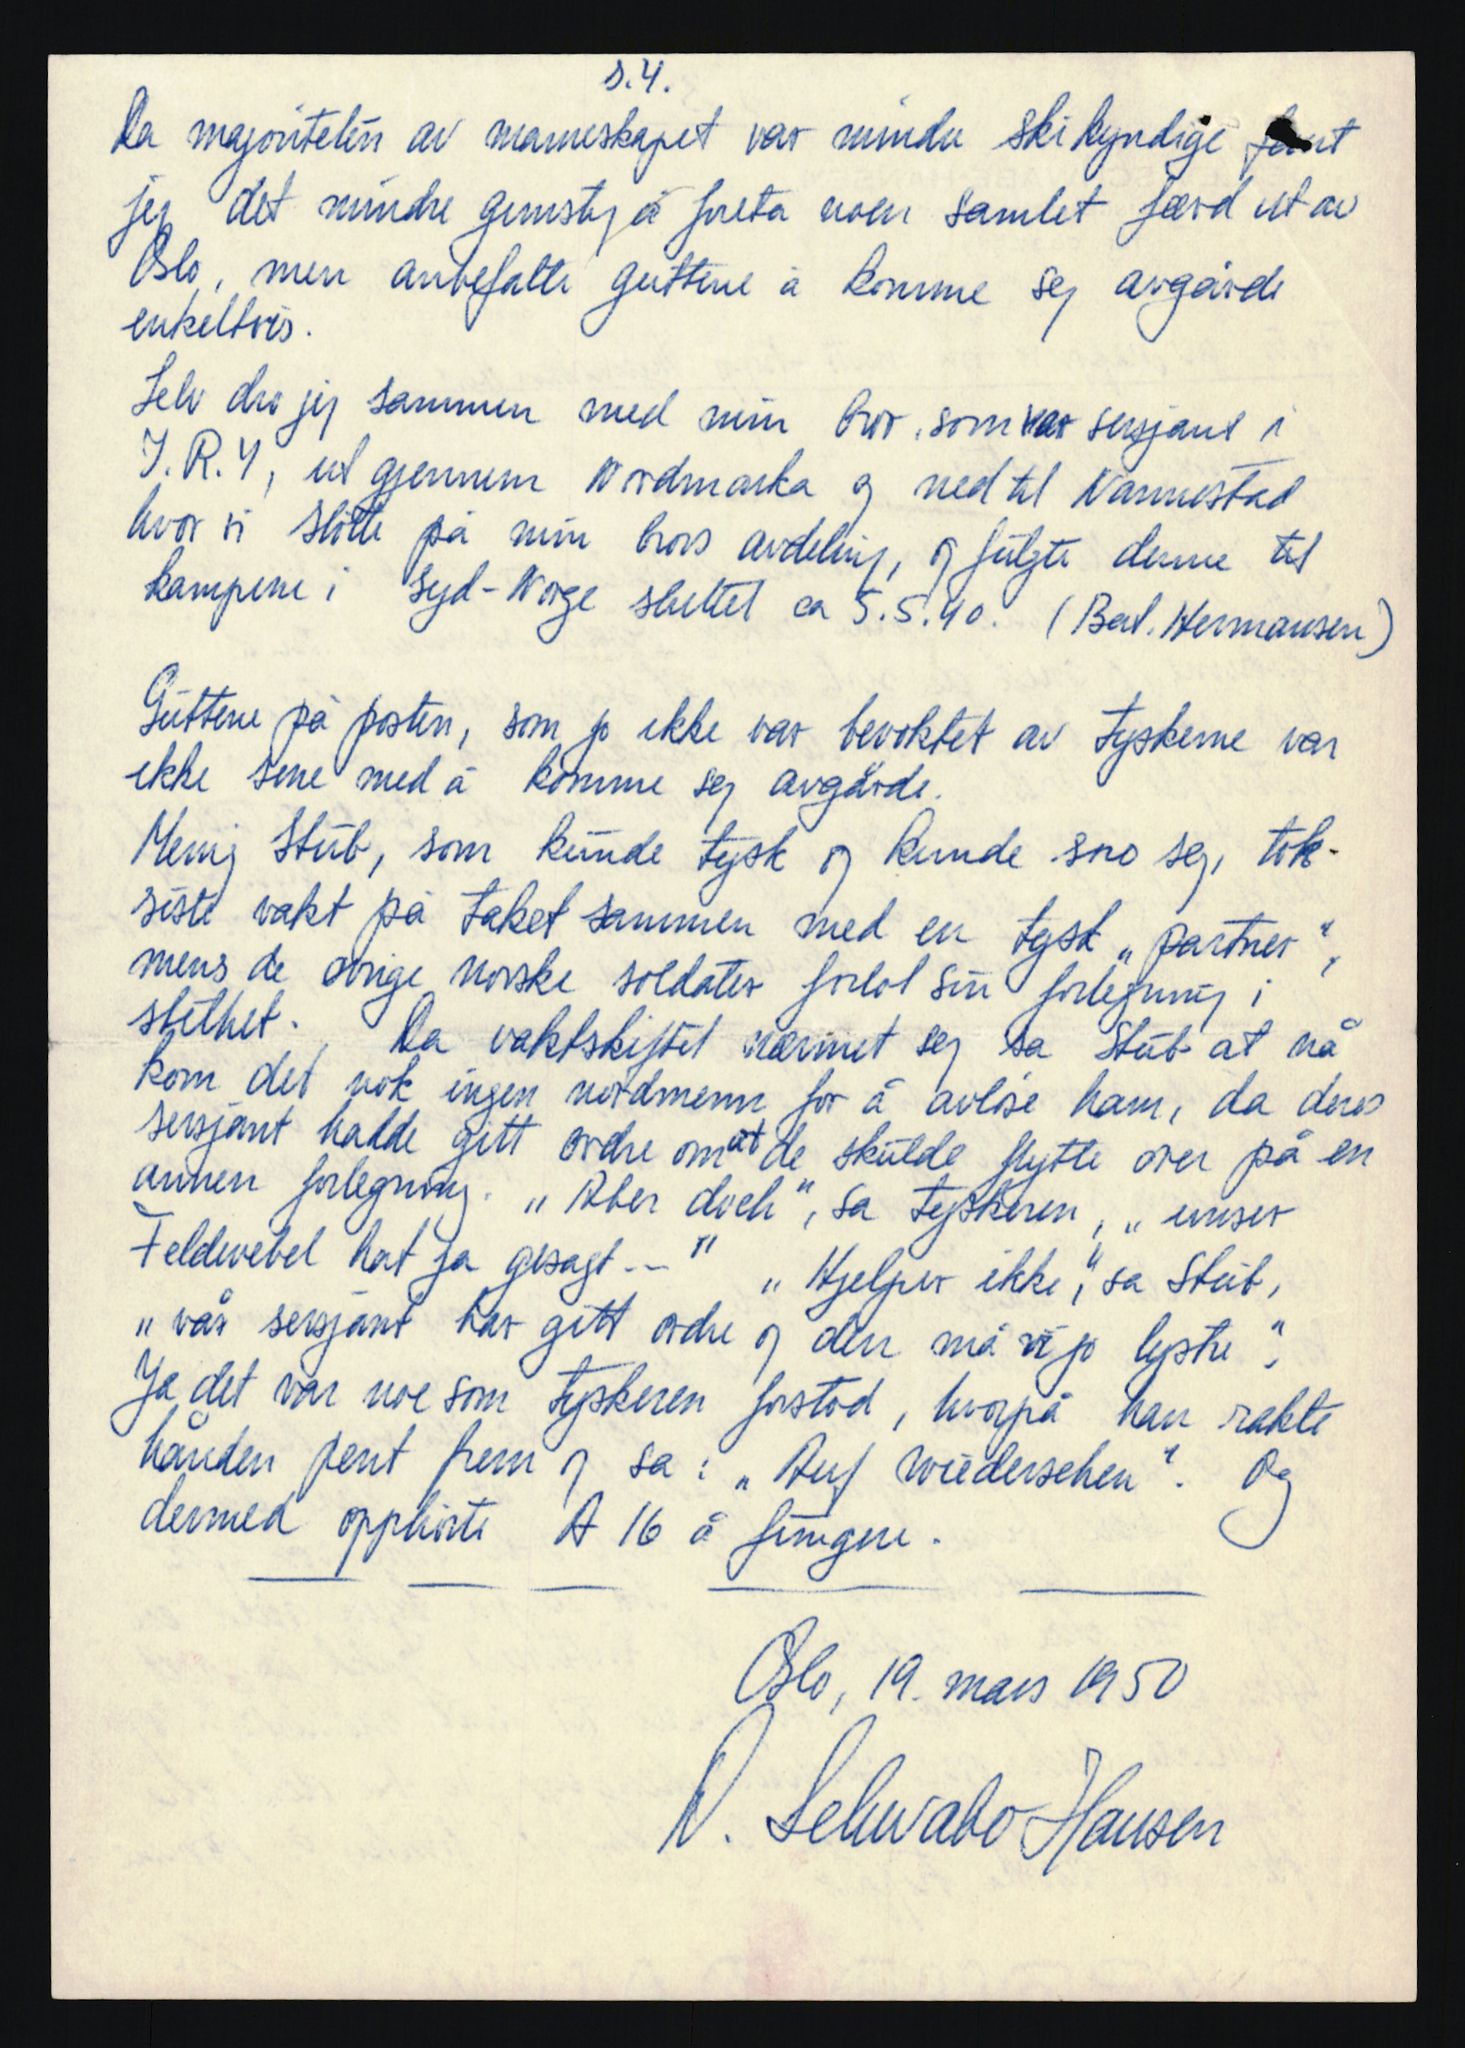 s.4.
Da majoriteten av manneskapet var mindre skikyndige fant
jeg det mindre gunstig å foreta noen samlet færd ut av
Oslo, men anbefalte guttene å komme seg avgårde
enkeltvis.
Selv dro jeg sammen med min bror, som var sersjant i
I.R.4, ut gjennem Nordmarka og ned til Nannestad
hvor vi støtte på min brors avdeling, og fulgte denne til
kampene i Syd-Norge sluttet ca 5.5.40. (Bat. Hermansen)
Guttene på posten, som jo ikke var bevoktet av tyskerne var
ikke sene med å komme seg avgårde.
Menig Stub, som kunde tysk og kunde sno seg, tok
siste vakt på taket sammen med en tysk „partner",
mens de øvrige norske soldater forlot sin forlegning i
stillhet. Da vaktskiftet nærmet seg sa Stub at nå
kom det nok ingen nordmenn for å avløse ham, da deres
sersjant hadde gitt ordre om at de skulde flytte over på en
annen forlegning. „Aber doch", sa tyskeren, „unser
Feldwebel hat ja gesagt --" „Hjelper ikke", sa Stub,
„vår sersjant har gitt ordre og den må vi jo lystre".
Ja det var noe som tyskeren forstod, hvorpå han rakte
hånden pent frem og sa: „Auf wiedersehen". Og
dermed opphørte A 16 å fungere.
Oslo, 19. mars 1950
Schwabo Hansen